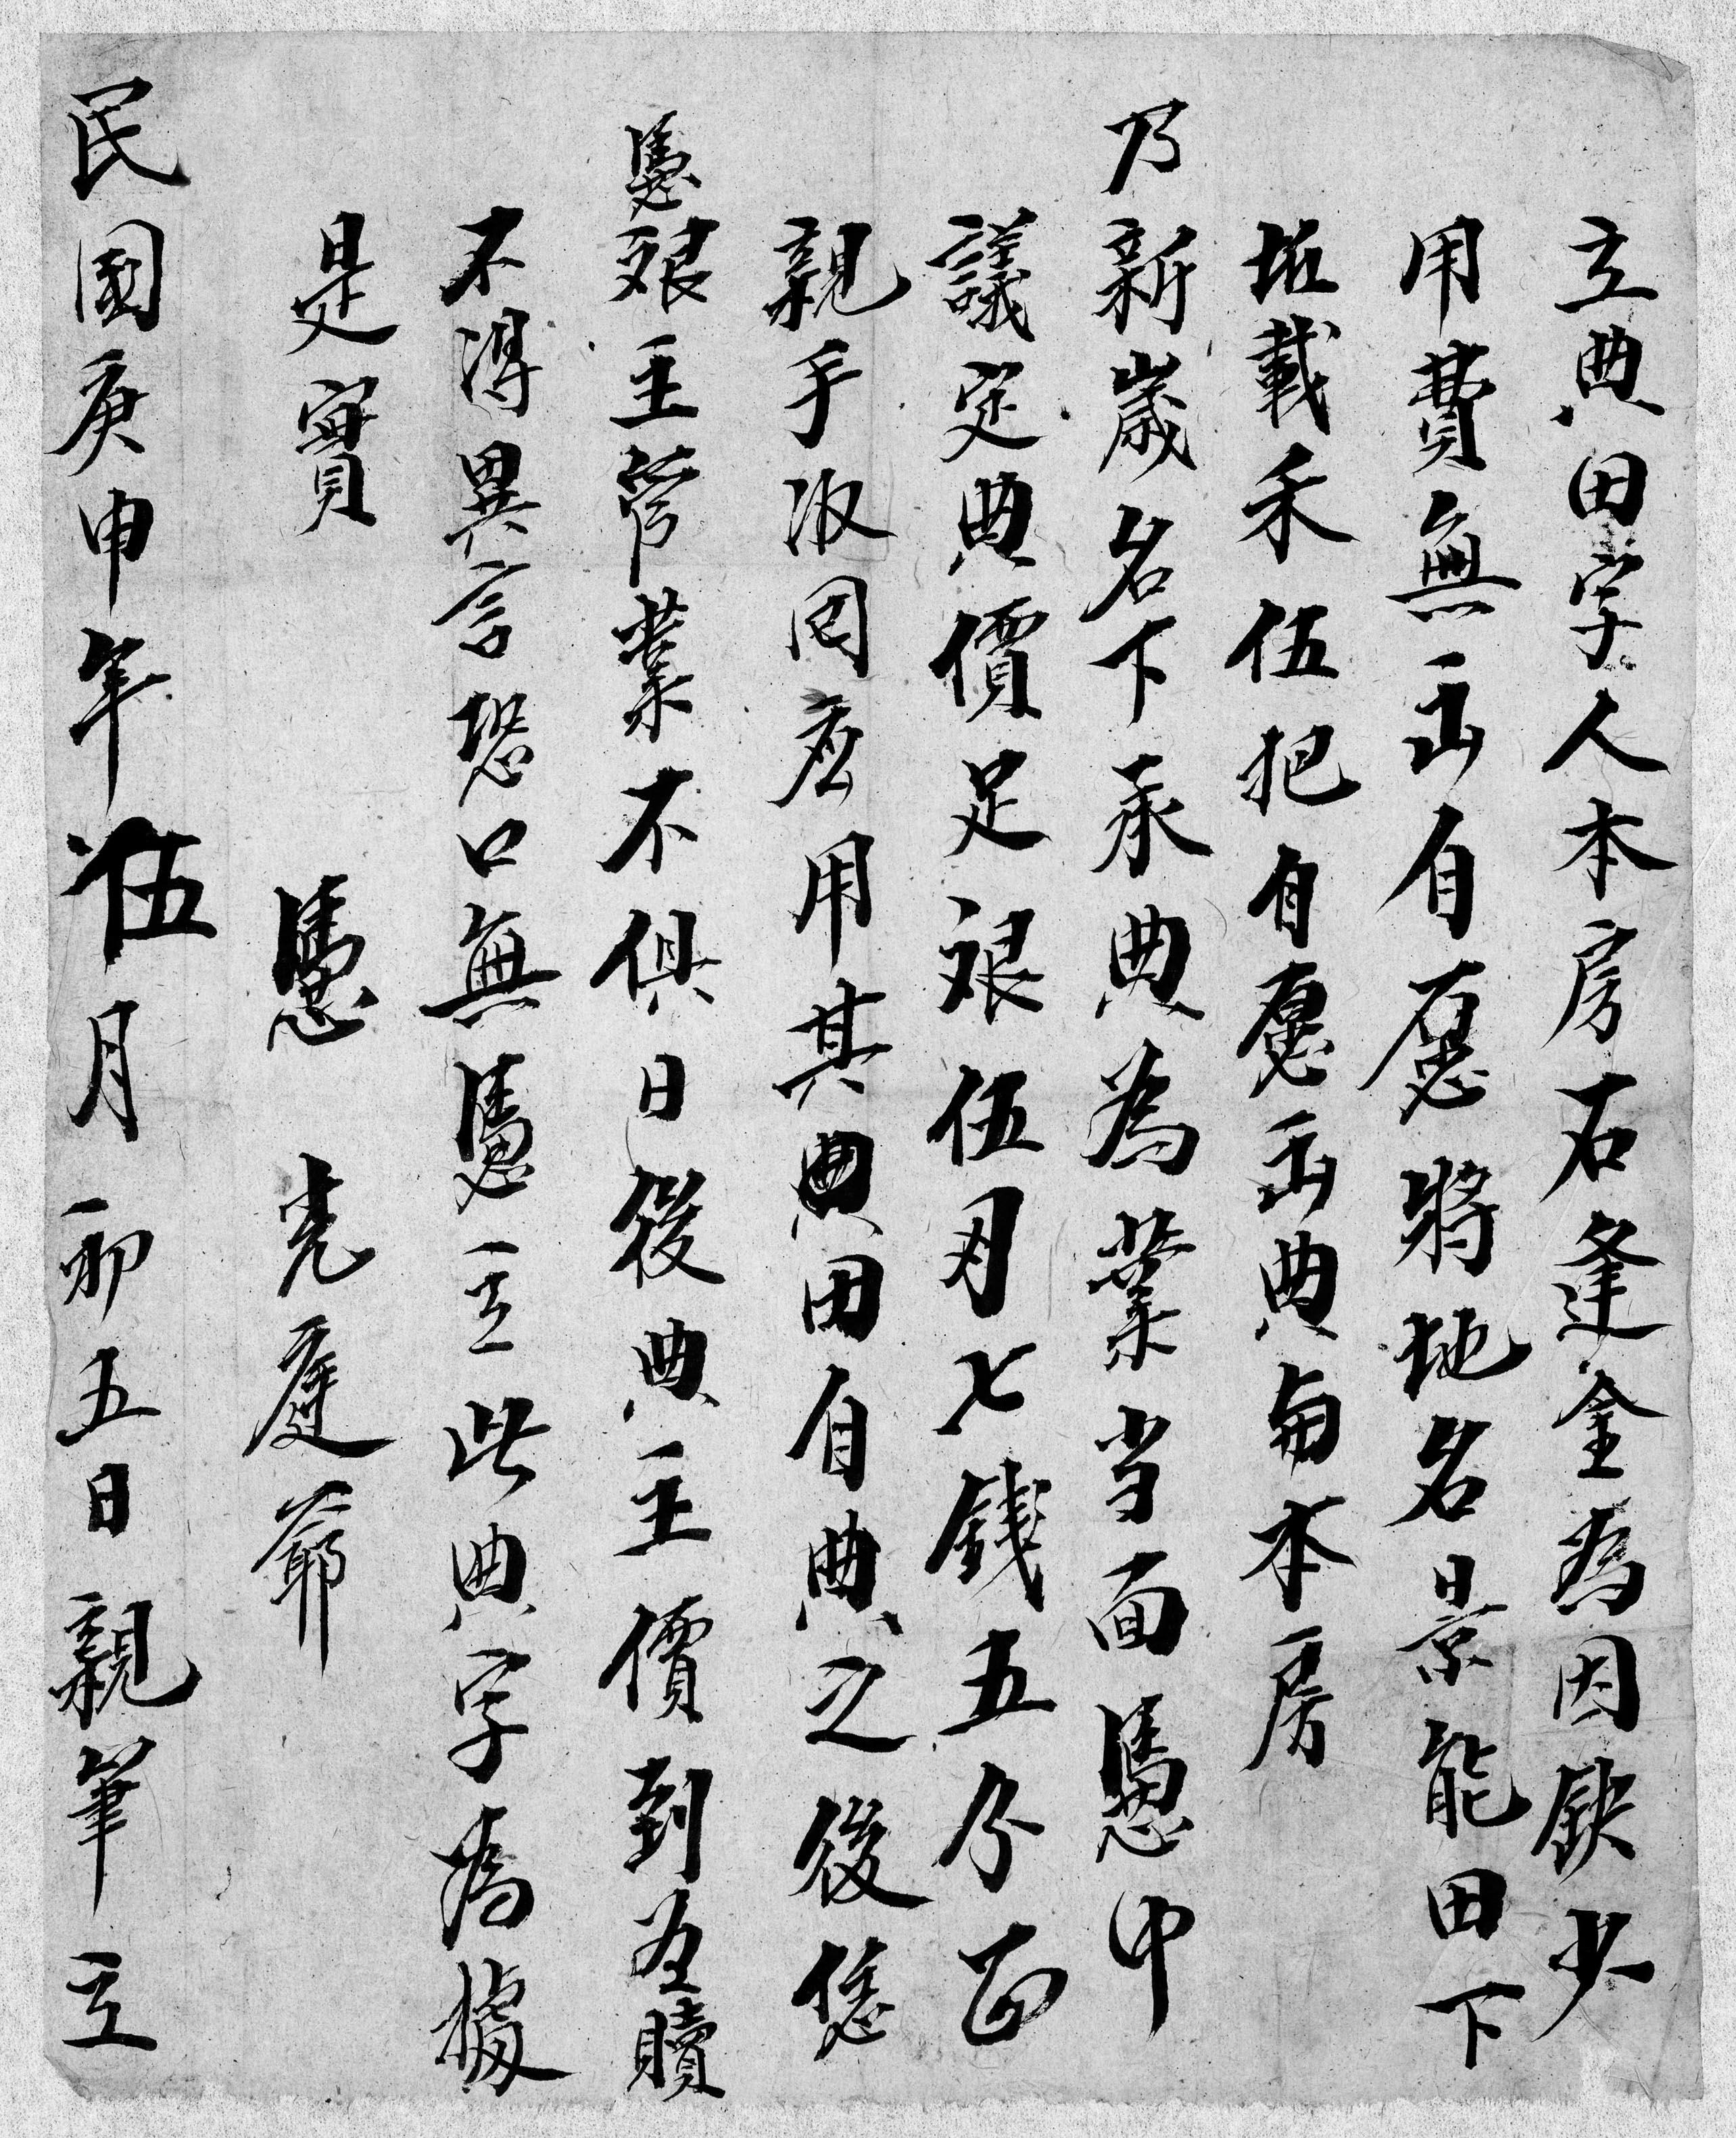 立典田字人本房石逢金為因缺少
用費無出自愿將地名景能田下
坵載禾伍把自愿出典與本房
乃新歲名下承典為業当面憑中
議定典價足銀伍月七錢五分正
親手收回應用其典田自典之後恁
憑銀主管業不俱日後典主價到並贖
不得異言恐口無憑立此典字為據
是實
憑 光庭爺
民國庚申年伍月初五日親筆立